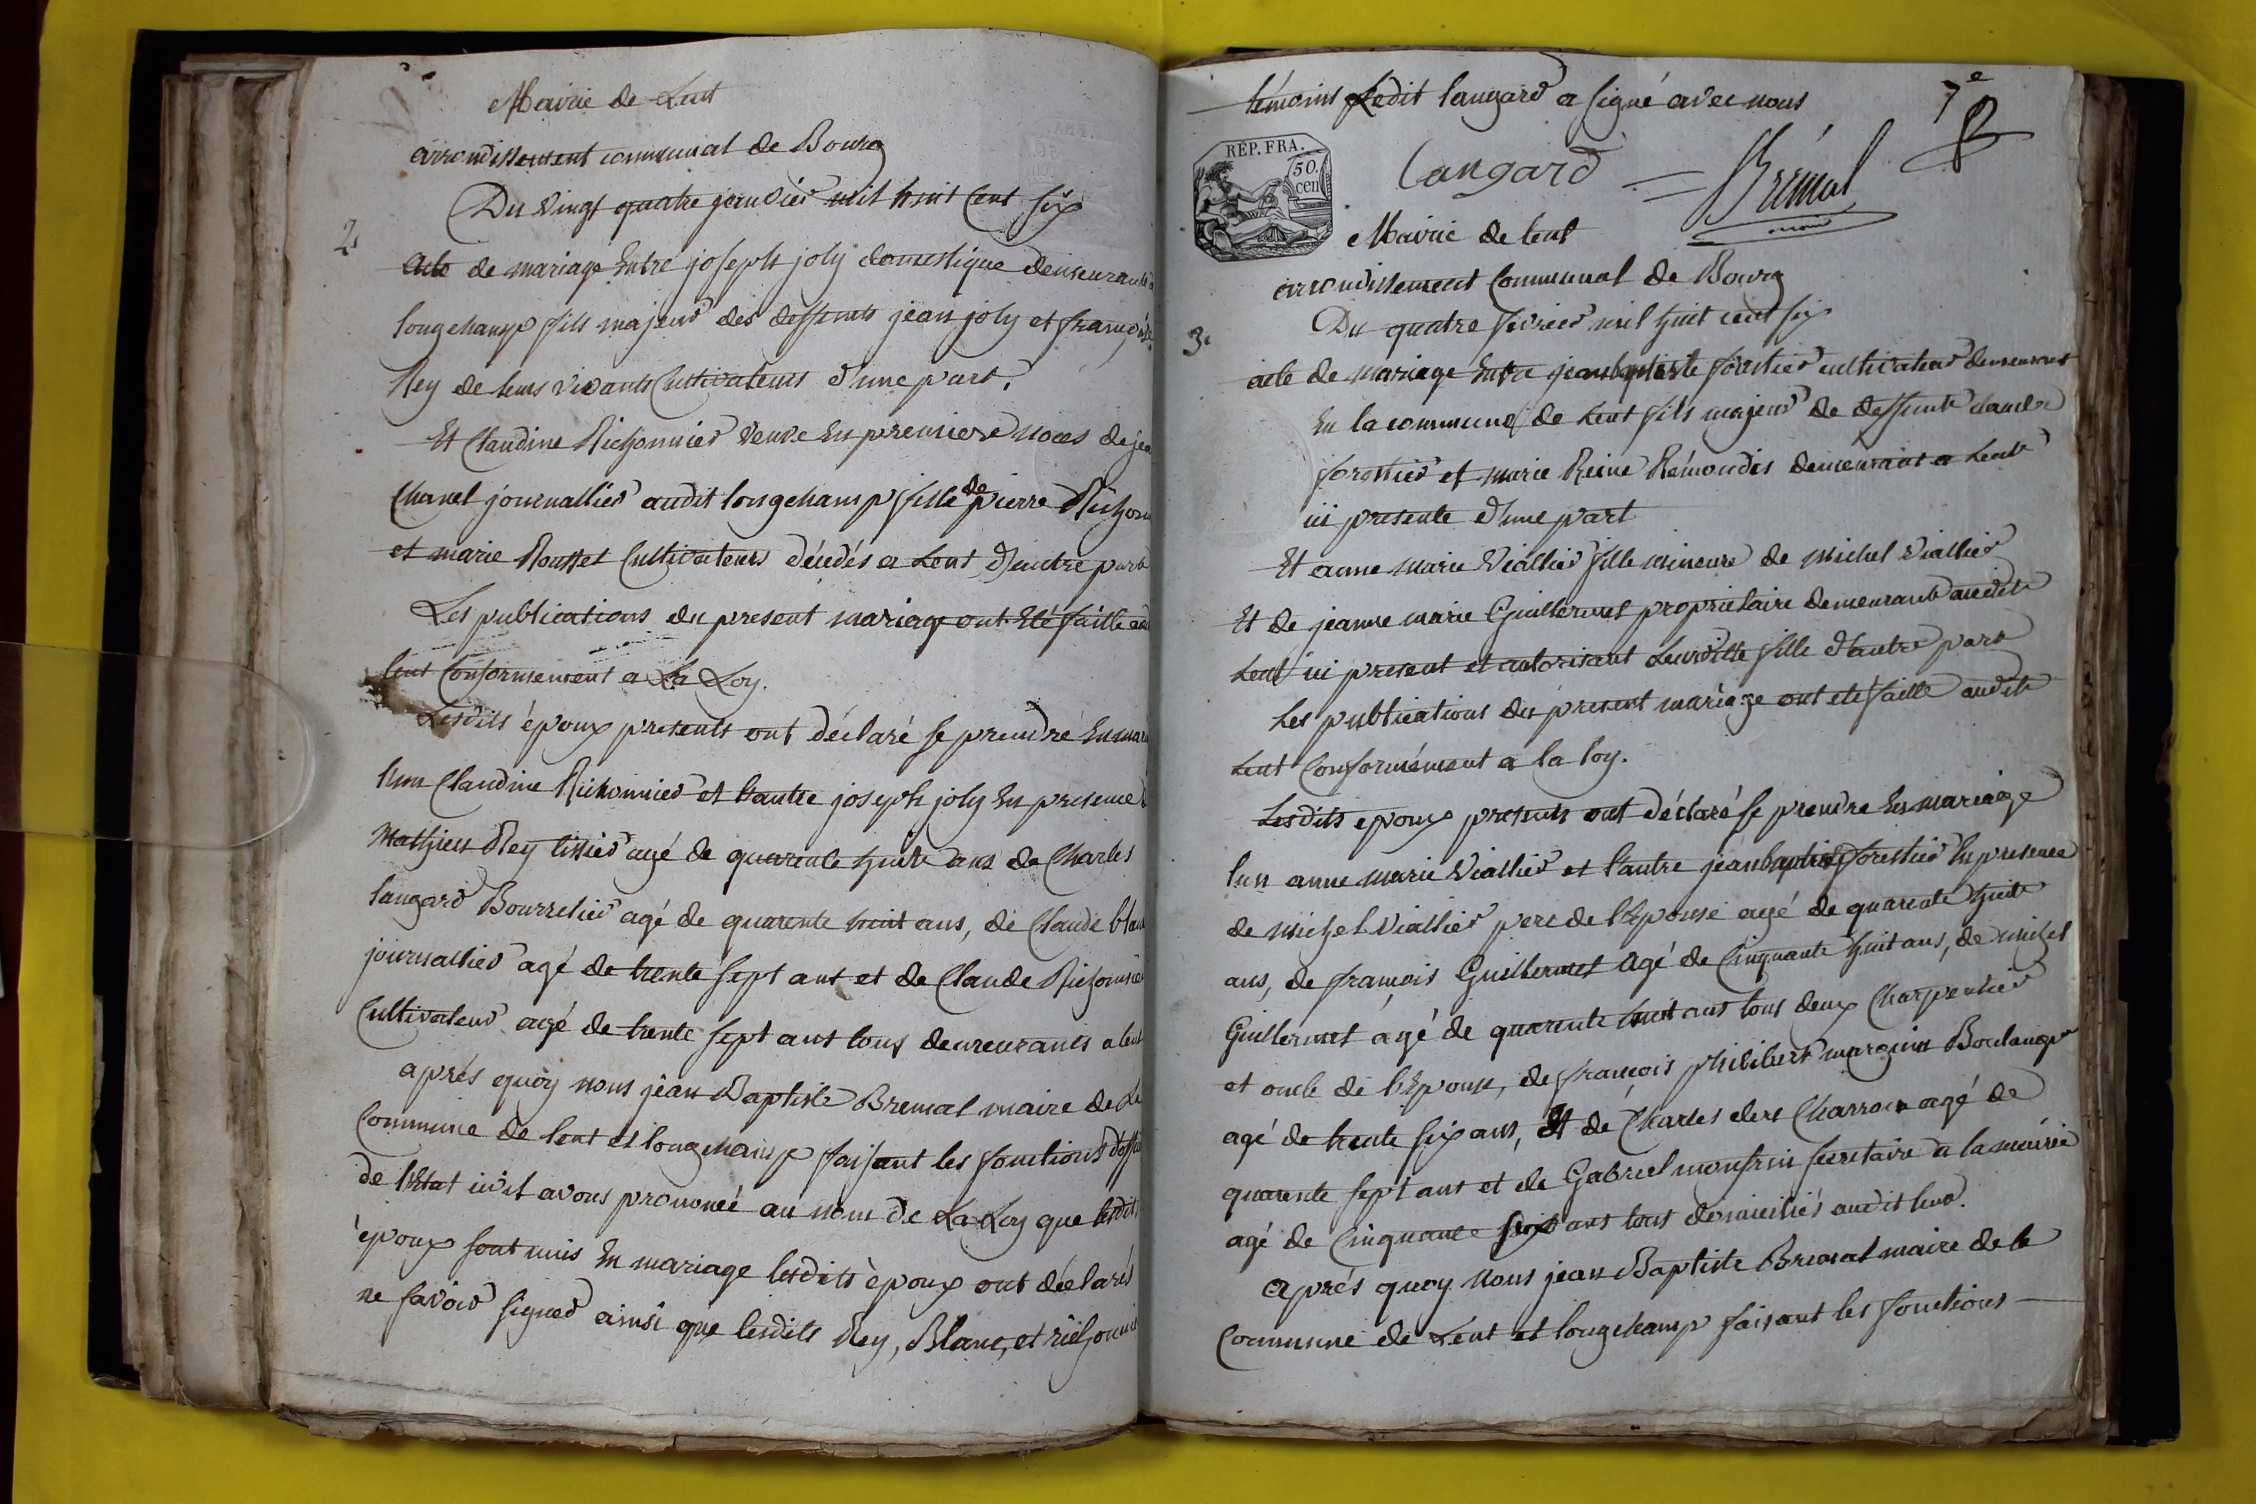 Mairie de Lent
arrondissement communal de Bourg
Du vingt quatre janvier mil huit Cent six
2
acte de mariage Entre joseph joly domestique demeurant a
longchamp fils majeur des deffunts jean joly et françoise
Rey de leurs vivants Cultivateurs d'une part,
Et Claudine Richonnier veuve En premiere noces de jea
Chanel journallier audit longchamp fille de pierre Richon
et marie Rousset Cultivateurs décédés a Lent d'autre part
Les publications du present mariage ont Eté faitte au
lent Conformement a La Loy.
Lesdits époux presents ont déclaré se prendre En mari
l'un Claudine Richonnier et l'autre joseph joly En presence
Mathieu Rey tissier agé de quarente huit ans de Charles
langard Bourrelier agé de quarente huit ans, de Claude blan
journallier agé de trente sept ans et de Claude Richonnier
Cultivateur agé de trente sept ans tous demeurants a lent
aprés quoy nous jean Baptiste Bremal maire de La
Commune de lent et longchamp faisant les fonctions d'offi
de l'Etat civil avons prononcé au nom de La Loy que lesdits
époux sont unis En mariage lesdits époux ont déclarés
ne savoir signer ainsi que lesdits Rey, Blanc, et richonnie
7e
témoins Ledit langard a signé avec nous
REP. FRA.
50.
cen
Langard
Brémal
maire
Mairie de lent
arrondissement Communal de Bourg
Du quatre fevrier mil huit cent six
3.
acte de mariage Entre jean baptiste forestier cultivateur demeurant
En la commune de Lent fils majeur de deffunt claude
forestier et marie Reine Rémondin demeurant a Lent
ici presente d'une part
Et anne marie Viallier fille mineure de michel Viallier
Et de jeanne marie Guillermet proprietaire demeurant audit
Lent ici present et autorisant Leurditte fille d'autre part
Les publications du present mariage ont eté faitte audit
Lent Conformément a la loy.
Lesdits epoux presents ont déclaré se prendre En mariage
l'un anne marie Viallier et l'autre jean baptiste forestier En presence
de michel Viallier pere de l'Epouse agé de quarente huit
ans, de françois Guillermet agé de Cinquante huit ans, de michel
Guillermet agé de quarente huit ans tous deux Charpentier
et oncle de l'Epouse, de françois philibert marguin Boulanger
agé de trente six ans, Et de Charles clerc Charron agé de
quarente sept ans et de Gabriel monfrin secretaire a la mairie
agé de Cinquante ans tous domiciliés audit lent.
aprés quoy Nous jean Baptiste Bremal maire de la
Commune de Lent et longchamp faisant les fonctions